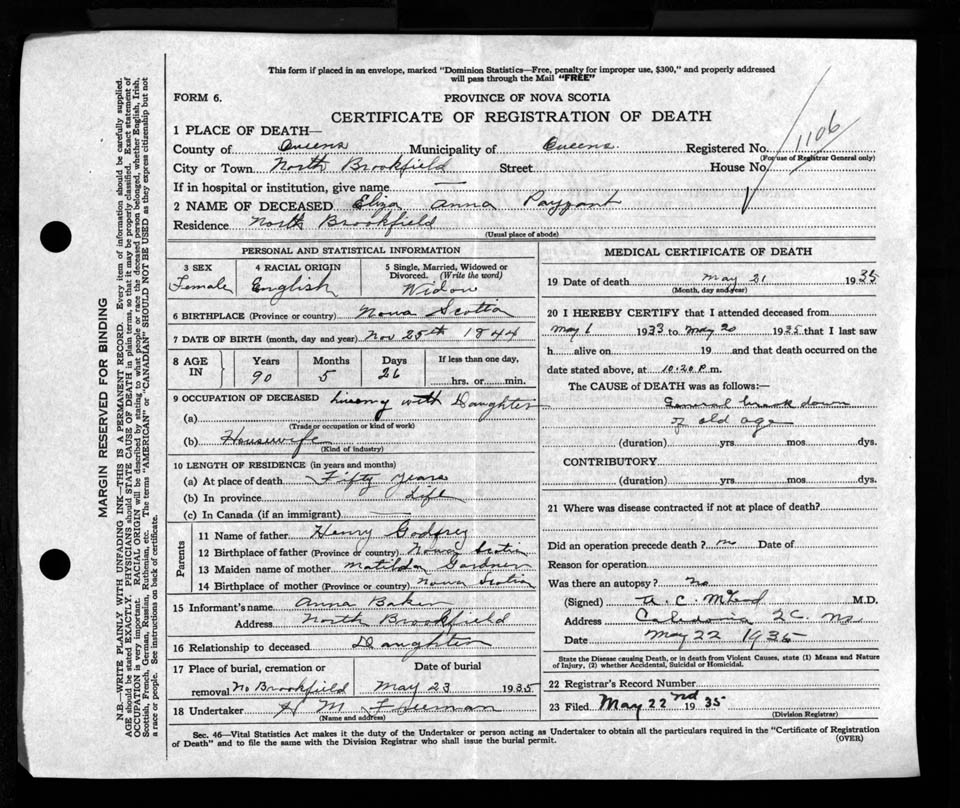 This form if placed in an envelope, marked "Dominion Statistics—Free, penalty for improper use, $300," and properly addressed
will pass through the Mail "FREE"
FORM 6.
PROVINCE OF NOVA SCOTIA
CERTIFICATE OF REGISTRATION OF DEATH
1 PLACE OF DEATH—
County of Queens Municipality of Queens Registered No. 1106
(For use of Registrar General only)
City or Town North Brookfield Street House No.
If in hospital or institution, give name —
2 NAME OF DECEASED Eliza Anna Payzant
Residence North Brookfield
(Usual place of abode)
PERSONAL AND STATISTICAL INFORMATION
3 SEX Female
4 RACIAL ORIGIN English
5 Single, Married, Widowed or Divorced. (Write the word) Widow
6 BIRTHPLACE (Province or country) Nova Scotia
7 DATE OF BIRTH (month, day and year) Nov 25th 1844
8 AGE IN Years 90 Months 5 Days 26 If less than one day, hrs. or min.
9 OCCUPATION OF DECEASED Living with Daughter
(a)
(Trade or occupation or kind of work)
(b) Housewife
(Kind of industry)
10 LENGTH OF RESIDENCE (in years and months)
(a) At place of death Fifty Years
(b) In province Life
(c) In Canada (if an immigrant) —
Parents
11 Name of father Henry Godfrey
12 Birthplace of father (Province or country) Nova Scotia
13 Maiden name of mother Matilda Gardner
14 Birthplace of mother (Province or country) Nova Scotia
15 Informant's name Anna Baker
Address North Brookfield
16 Relationship to deceased Daughter
17 Place of burial, cremation or removal No Brookfield
Date of burial May 23 1935
18 Undertaker H M Freeman
(Name and address)
MEDICAL CERTIFICATE OF DEATH
19 Date of death May 21 1935
(Month, day and year)
20 I HEREBY CERTIFY that I attended deceased from
May 6 1933 to May 20 1935 that I last saw
h alive on 19 and that death occurred on the
date stated above, at 10.20 P.m.
The CAUSE of DEATH was as follows:—
General break down
of old age
(duration) yrs. mos. dys.
CONTRIBUTORY
(duration) yrs. mos. dys.
21 Where was disease contracted if not at place of death?
Did an operation precede death? no Date of
Reason for operation
Was there an autopsy? no
(Signed) M.D.
Address Caledonia Q.C. NS
Date May 22 1935
State the Disease causing Death, or in death from Violent Causes, state (1) Means and Nature
of Injury, (2) whether Accidental, Suicidal or Homicidal.
22 Registrar's Record Number
23 Filed May 22nd 1935
(Division Registrar)
Sec. 46—Vital Statistics Act makes it the duty of the Undertaker or person acting as Undertaker to obtain all the particulars required in the "Certificate of Registration
of Death" and to file the same with the Division Registrar who shall issue the burial permit.
(OVER)
MARGIN RESERVED FOR BINDING
N.B.—WRITE PLAINLY WITH UNFADING INK—THIS IS A PERMANENT RECORD. Every item of information should be carefully supplied.
AGE should be stated EXACTLY. PHYSICIANS should STATE CAUSE OF DEATH in plain terms, so that it may be properly classified. Exact statement of
OCCUPATION is very important. RACIAL ORIGIN will be described by stating to what people or race the deceased person belonged, whether English, Irish,
Scottish, French, German, Russian, Ruthenian, etc. The terms "AMERICAN" or "CANADIAN" SHOULD NOT BE USED as they express citizenship but not
a race or people. See instructions on back of certificate.